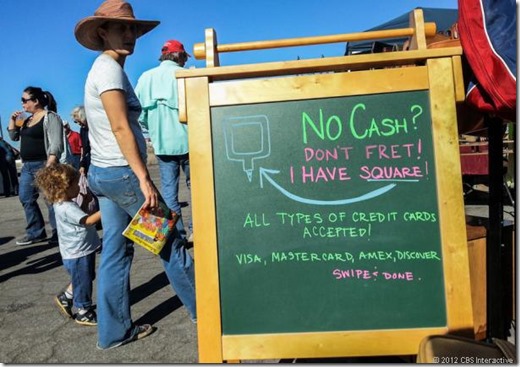 NO CASH?
DON'T FRET!
I HAVE SQUARE!
ALL TYPES OF CREDIT CARDS
ACCEPTED!
VISA, MASTERCARD, AMEX, DISCOVER
SWIPE & DONE.
© 2012 CBS Interactive